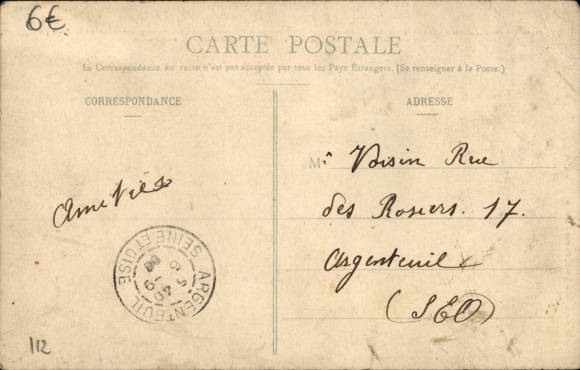 6€
CARTE POSTALE
La Correspondance au recto n'est pas acceptée par tous les Pays Étrangers. (Se renseigner à la Poste.)
CORRESPONDANCE
ADRESSE
Amitiés
Mr Voisin Rue
des Rosiers. 17.
Argenteuil
(S&O)
ARGENTEUIL
SEINE ET OISE
112